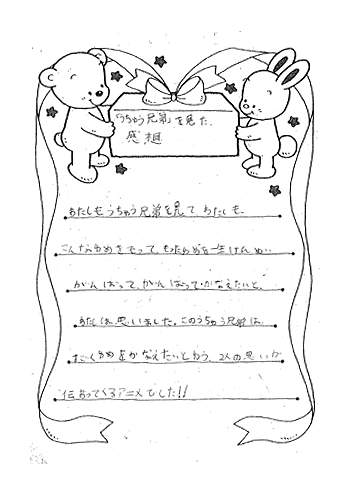 「うちゅう兄弟」を見た、
感想
わたしもうちゅう兄弟を見て わたしも、
こんなゆめをもって、もったゆめを一生けんめい
がんばって、がんばって、かなえたいと、
わたしは思いました。このうちゅう兄弟は、
すごくゆめをかなえたいとゆう、2人の思いが
伝わってくるアニメでした!!